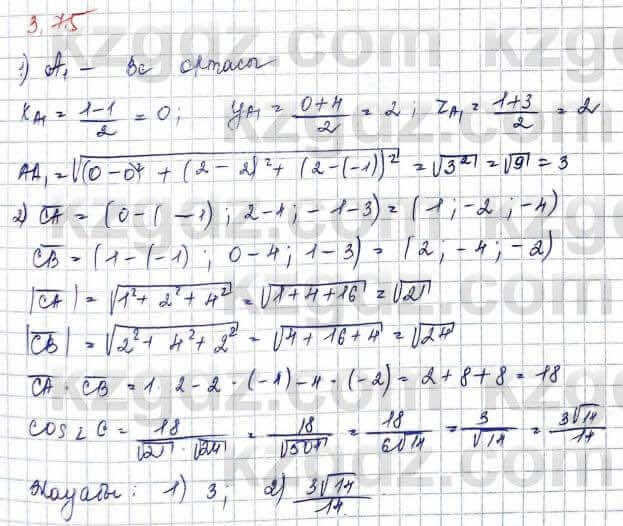 3.75
1) A₁ – BC ортасы
x_A₁ = (1-1)/2 = 0; y_A₁ = (0+4)/2 = 2; z_A₁ = (1+3)/2 = 2
AA₁ = √((0-0)² + (2-2)² + (2-(-1))²) = √3² = √9 = 3
2) CA = (0-(-1); 2-1; -1-3) = (1; -2; -4)
CB = (1-(-1); 0-4; 1-3) = (2; -4; -2)
|CA| = √(1²+2²+4²) = √(1+4+16) = √21
|CB| = √(2²+4²+2²) = √(4+16+4) = √24
CA · CB = 1·2-2·(-1)-4·(-2) = 2+8+8 = 18
cos∠C = 18/(√21·√24) = 18/√504 = 18/(6√14) = 3/√14 = 3√14/14
Жауабы: 1) 3; 2) 3√14/14
kzgdz.com